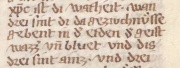 xp̄c ist di warheit. wan
drei sint di da gezucnüsse
gebent in d' erden d' geist
wazz' vn̄ bluet. vnd dis
drei sint ainz. vnd drei